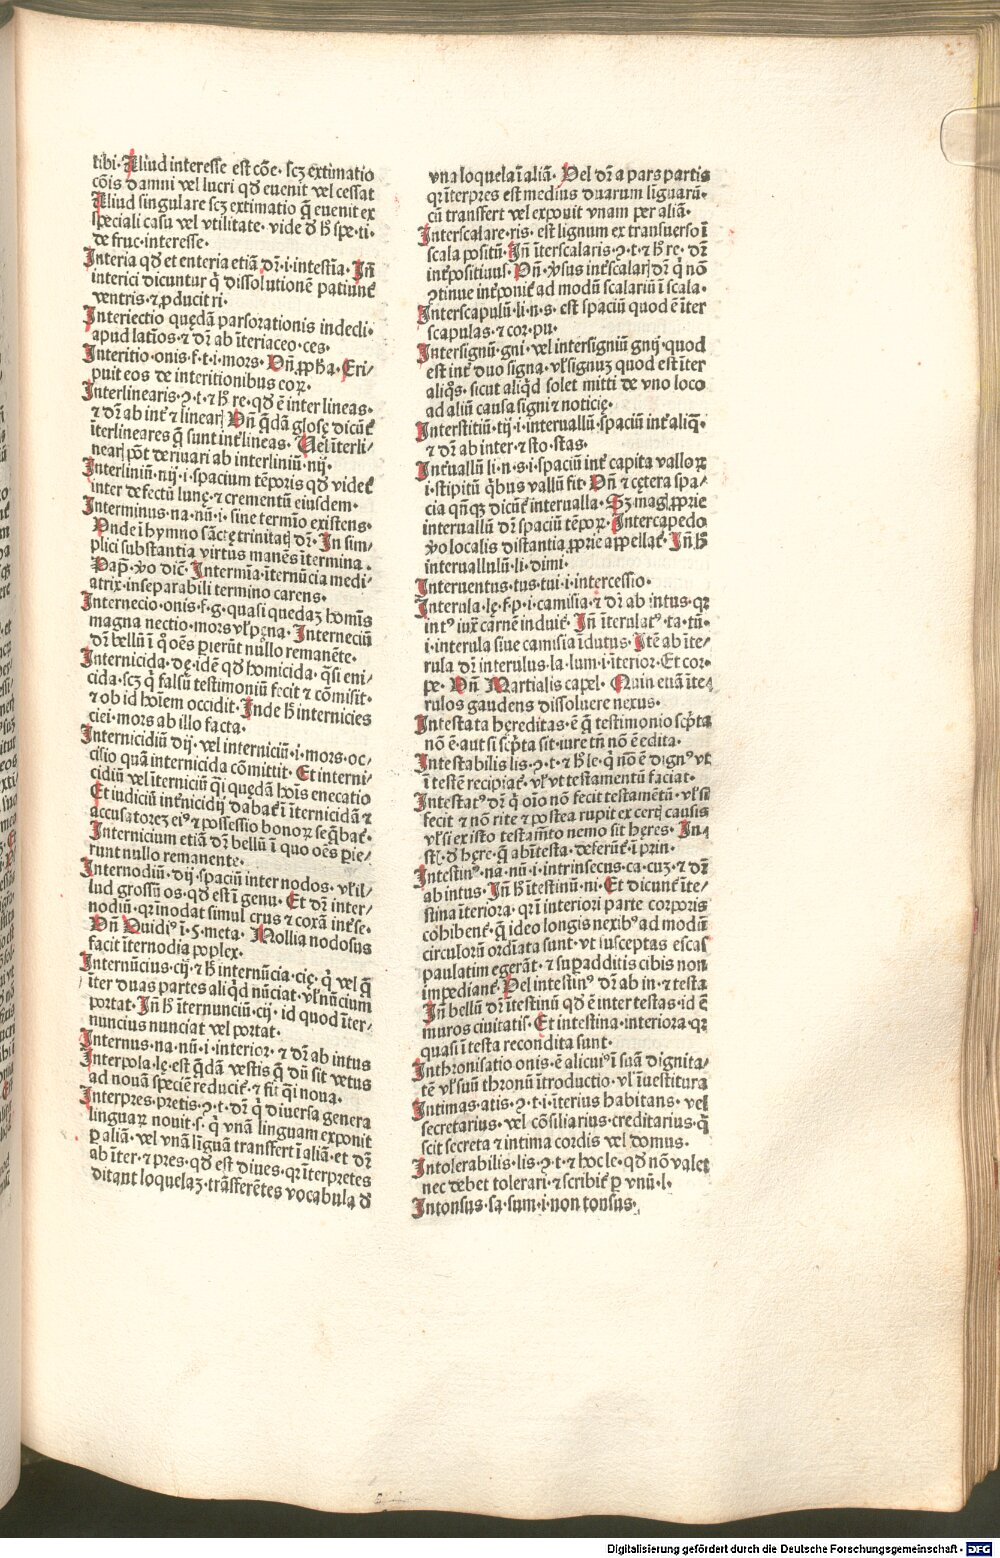 tibi· Aliud interesse est cōe· scꝫ extimatio
cōis damni vel lucri qđ euenit vel cessat
Aliud singulare scꝫ extimatio q̄ euenit ex
speciali casu vel vtilitate· vide đ ħ spe·ti·
de fruc·interesse·
Interia qđ et enteria etiā dr̄·i·intestīa· Iñ
interici dicuntur q̇ dissolutionē patiunt̄
ventris·⁊ ꝓducit ri·
Interiectio quędā parsorationis indecli·
apud latīos·⁊ dr̄ ab īteriaceo·ces·
Interitio·onis·f·t·i·mors· Vñ ꝓpħa· Eri/
puit eos de interitionibus eoꝝ·
Interlinearis·ꝯ·t·⁊ ħ re·qđ ē inter lineas·
⁊ dr̄ ab int̄ ⁊ linearꝭ Vñ q̄dā glosę dicūt̄
īterlineares q̄ sunt int̄ lineas· Vel īterli/
nearꝭ pōt deriuari ab interliniū·nij·
Interliniū·nij·i·spacium tēporis qđ videt̄
inter defectū lunę·⁊ crementū eiusdem·
Interminus·na·nū·i·sine termīo existens·
Vnde ī hymno sāctę trinitatꝭ dr̄· In sim/
plici substantia virtus manēs ītermina·
Pap̄·ỽo dic̄· Intermīa·īternūcia medi/
atrix·inseparabili termino carens·
Internecio·onis·f·g·quasi quedaꝫ homīs
magna nectio·mors vł pęna· Interneciū
dr̄ bellū ī q̊ oēs ꝑierūt nullo remanēte·
Internicida·dę·idē qđ homicida· q̄si eni/
cida·scꝫ q̇ falsū testimoniū fecit ⁊ cōmisit·
⁊ ob id hoīem occidit· Inde ħ internicies
ciei·mors ab illo facta·
Internicidiū dij·vel interniciū·i·mors·oc/
cisio quā internicida cōmittit· Et interni/
cidiū vel īterniciū q̄i quędā hoīs enecatio
Et iudiciū int̄nicidij dabat̄ ī īternicidā ⁊
accusatoreꝫ eiꝰ ⁊ possessio bonoꝝ seq̄bat̄·
Internicium etiā dr̄ bellū ī quo oēs ꝑie/
runt nullo remanente·
Internodiū·dij·spaciū inter nodos·vł il/
lud grossū os·qđ est ī genu· Et dr̄ inter/
nodiū·qꝛ īnodat simul crus ⁊ coxā int̄ se·
Vñ Ouidiꝰ ī·5·meta· Mollia nodosus
facit īternodia poplex·
Internūcius·cij·⁊ ħ internūcia·cię·q̇ vel q̄
īter duas partes aliq̇d nūciat·vł nūcium
portat· Iñ ħ īternunciū·cij·id quod īter/
nuncius nunciat vel portat·
Internus·na·nū·i·interior·⁊ dr̄ ab intus
Interpola·lę·est q̄dā vestis q̄ dū sit vetus
ad nouā speciē reducit̄·⁊ fit q̄i noua·
Interpres·pretis·ꝯ·t·dr̄ q̇ diuersa genera
linguaꝝ nouit·s·q̇ vnā linguam exponit
ꝑ aliā·vel vnā līguā transfert ī aliā·et dr̄
ab īter·⁊ pres·qđ est diues·qꝛ īterpretes
ditant loquelaꝫ·trāsferētes vocabula đ
vna loquela ī aliā· Vel dr̄ a pars partis
qꝛ īterpres est medius duarum liguarū·
cū transfert vel exponit vnam per aliā·
Interscalare·ris·est lignum ex transuerso ī
scala positū· Iñ īterscalaris·ꝯ·t·⁊ ħ re·dr̄
int̄positiuus· Vñ ỽsus int̄scalarꝭ dr̄ q̇ nō
ꝯtinue int̄ponit̄ ad modū scalariū ī scala·
Interscapulū·li·n·s·est spaciū quod ē īter
scapulas·⁊ cor·pu·
Intersignū·gni·vel intersigniū gnij·quod
est int̄ duo signa·vł signuꝫ quod est īter
aliq̄s·sicut aliq̇d solet mitti de vno loco
ad aliū causa signi ⁊ noticię·
Interstitiū·tij·i·interuallū·spaciū int̄ aliq̄·
⁊ dr̄ ab inter·⁊ sto·stas·
Int̄uallū li·n·s·i·spaciū int̄ capita valloꝝ
·i·stipitū q̇bus vallū fit· Vñ ⁊ cętera spa/
cia qn̄qꝫ dicūt̄ interualla· Sꝫ magꝭ ꝓprie
interuallū dr̄ spaciū tēpoꝝ· Intercapedo
ỽo localis distantia ꝓprie appellat̄· Iñ ħ
interuallulū·li·dimi·
Interuentus·tus·tui·i·intercessio·
Interula·lę·f·p·i·camisia·⁊ dr̄ ab intus·qꝛ
intꝰ iuxͣ carnē induit̄· Iñ īterulatꝰ·ta·tū·
·i·interula siue camisia īdutus· Itē ab īte/
rula dr̄ interulus·la·lum·i·īterior·Et cor·
pe· Vñ Martialis capel· Quin euā īte/
rulos gaudens dissoluere nexus·
Intestata hereditas·ē q̄ testimonio scp̄ta
nō ē·aut si scp̄ta sit·iure tn̄ nō ē edita·
Intestabilis lis·ꝯ·t·⁊ ħ le·q̇ nō ē dignꝰ vt
ī testē recipiat̄·vł vt testamentū faciat·
Intestatꝰ dr̄ q̇ oīo nō fecit testamētū·vł si
fecit ⁊ nō rite ⁊ postea rupit ex certꝭ causis
vł si ex isto testam̄to nemo sit hęres· In/
stꝭ·đ hęre·q̄ ab īntesta·deferūt̄·ī prin·
Intestinꝰ·na·nū·i·intrinsecus·ca·cuꝫ·⁊ dr̄
ab intus· Iñ ħ ītestinū·ni· Et dicunt̄ īte/
stina īteriora·qꝛ ī interiori parte corporis
cohibent̄·q̄ ideo longis nexibꝰ ad modū
circulorū ordīata sunt·vt iusceptas escas
paulatim egerāt·⁊ suꝑadditis cibis non
impediant̄· Vel intestinꝰ dr̄ ab in·⁊ testa
Iñ bellū dr̄ ītestinū qđ ē inter testas·id ē
muros ciuitatis· Et intestina·interiora·qꝛ
quasi ī testa recondita sunt·
Inthronisatio onis·ē alicuiꝰ ī suā dignita/
tē vł suū thronū ītroductio·vł īuestitura
Intimas·atis·ꝯ·t·i·īterius habitans· vel
secretarius·vel cōsiliarius·creditarius·q̇
scit secreta ⁊ intima cordis vel domus·
Intolerabilis·lis·ꝯ·t·⁊ hoc le·qđ nō valet
nec debet tolerari·⁊ scribit̄ ꝑ vnū·l·
Intonsus·sa·sum·i·non tonsus·
Digitalisierung gefördert durch die Deutsche Forschungsgemeinschaft - DFG